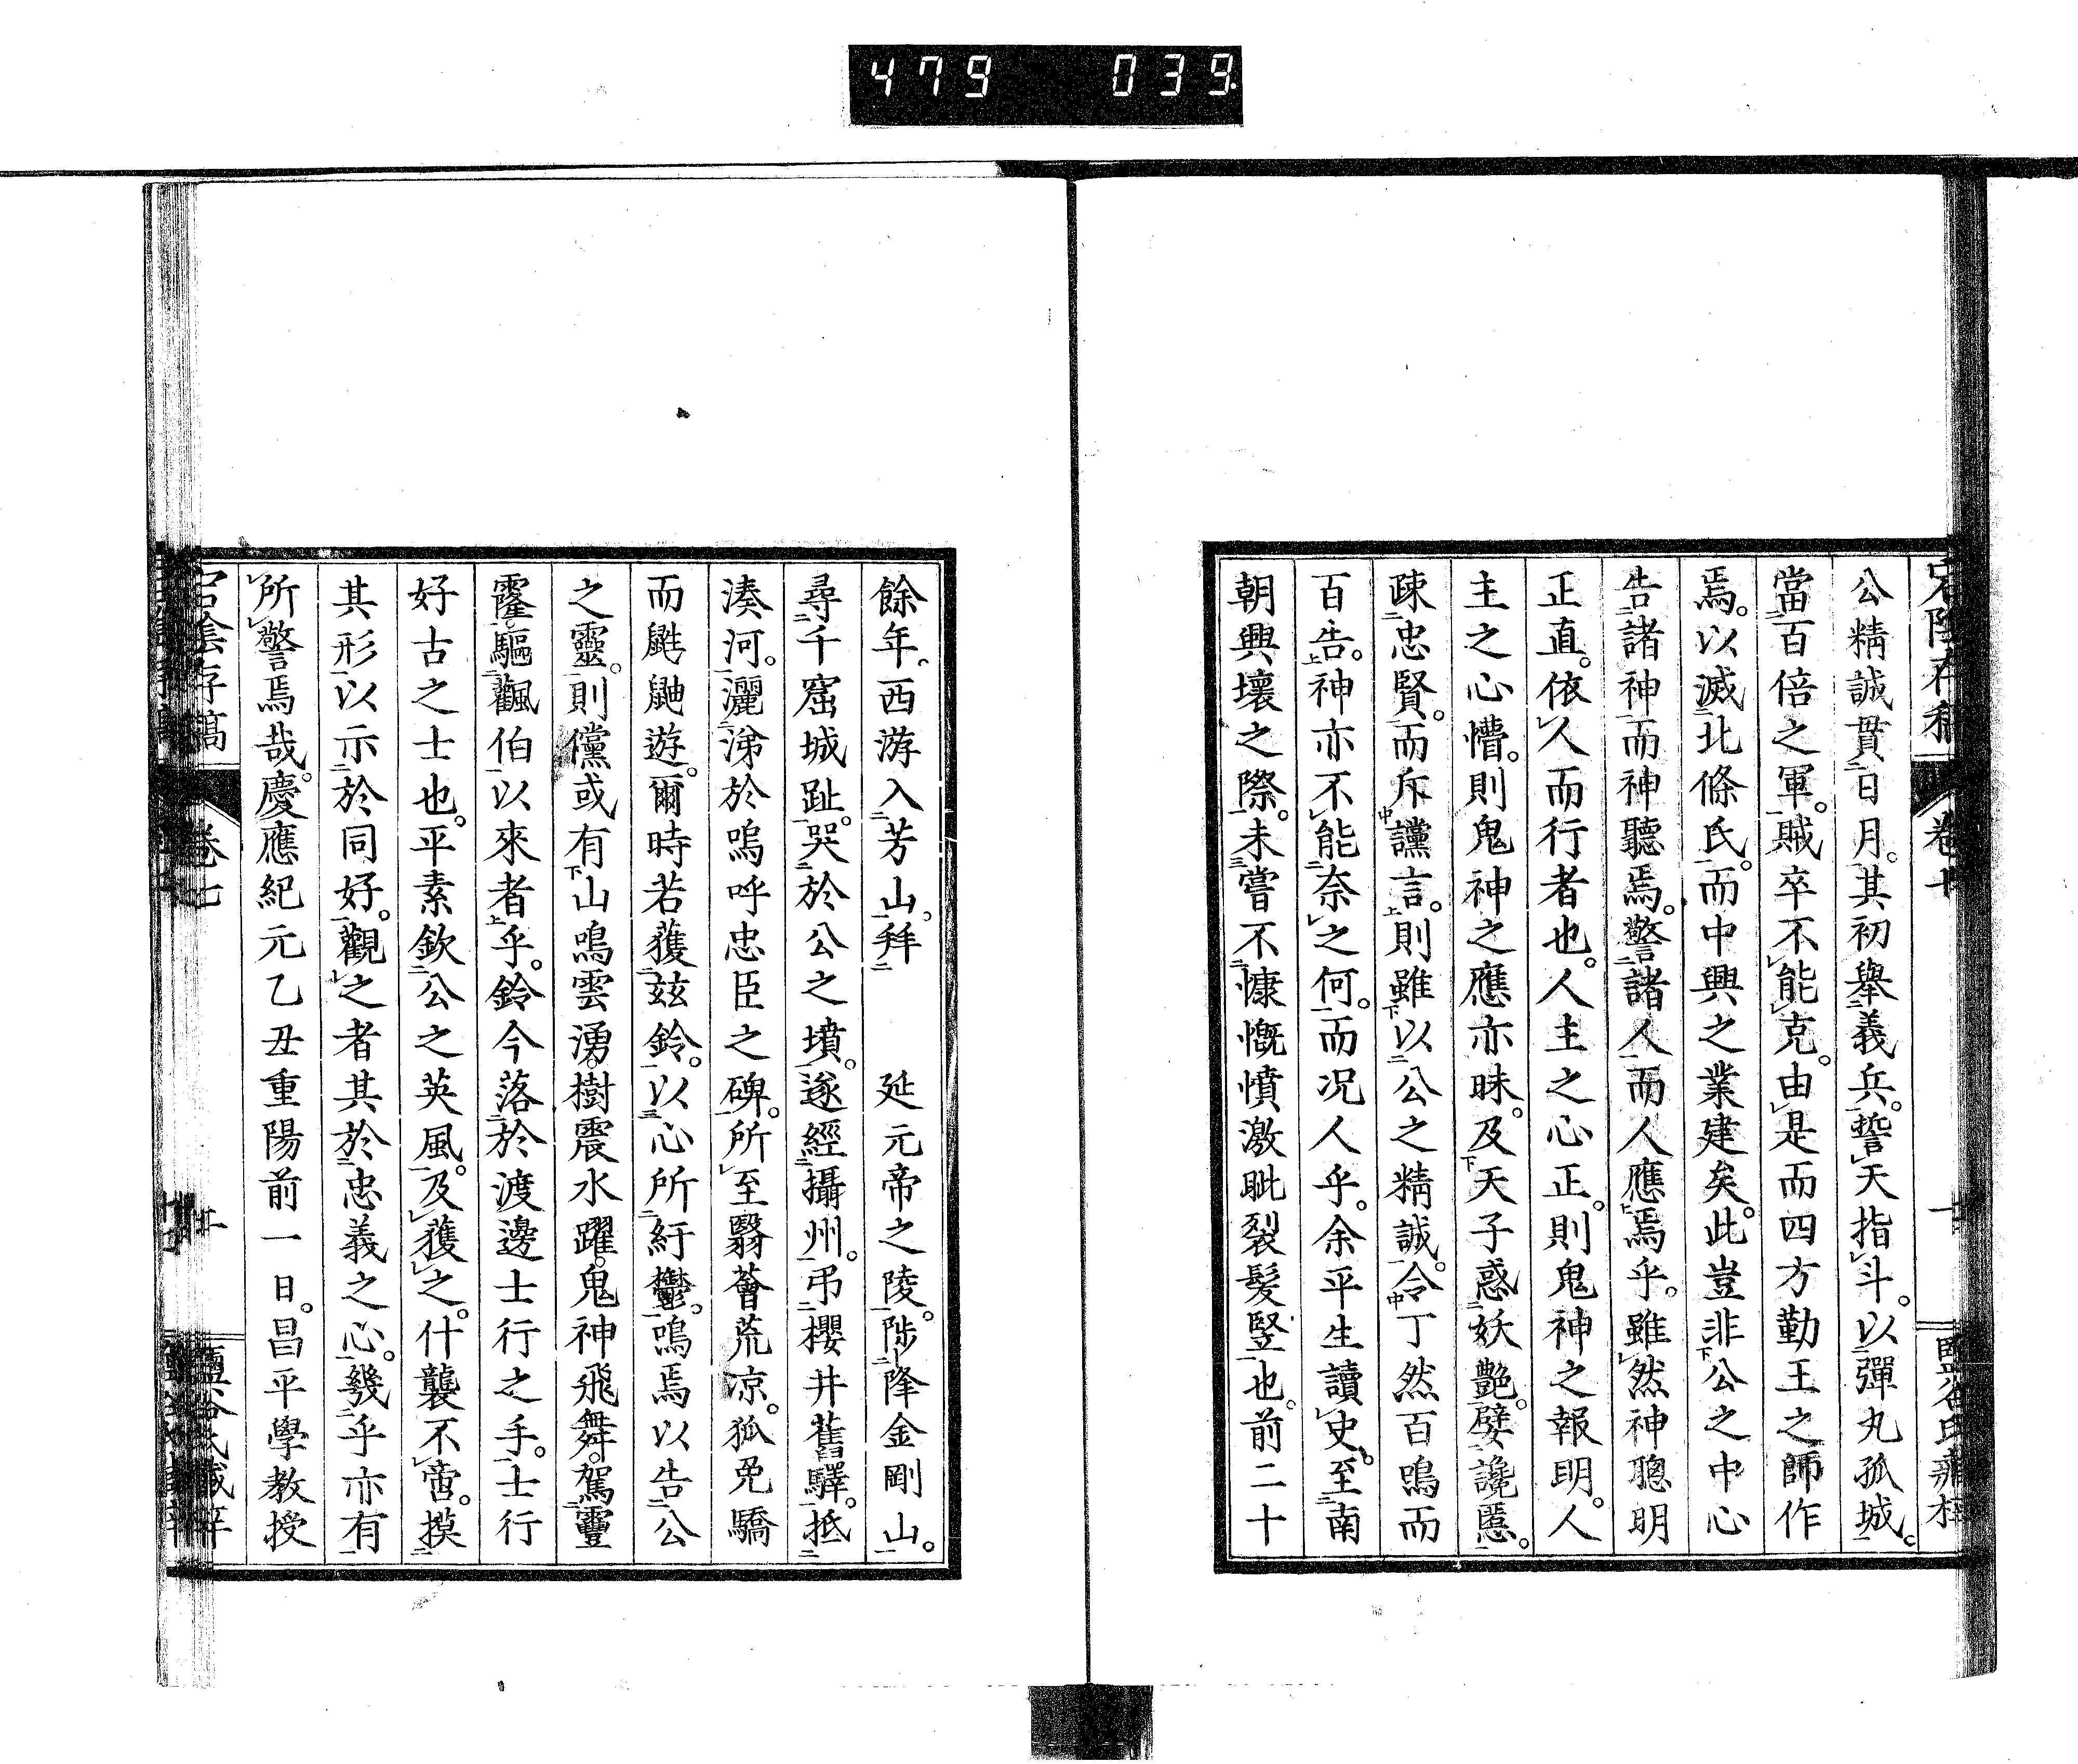 479 039
公精誠貫日月。其初舉義兵。誓天指斗。以彈丸孤城。
當百倍之軍。賊卒不能克。由是而四方勤王之師作
焉。以滅北條氏。而中興之業建矣。此豈非公之中心
告諸神而神聽焉。警諸人而人應焉乎。雖然神聰明
正直。依人而行者也。人主之心正。則鬼神之報明。人
主之心懵。則鬼神之應亦昧。及天子惑妖艷。嬖讒慝。
疎忠賢。而斥讜言。則雖以公之精誠。令丁然百鳴而
百告。神亦不能奈之何。而况人乎。余平生讀史。至南
朝興壞之際。未嘗不慷慨憤激眦裂髮竪也。前二十
餘年。西游入芳山。拜 延元帝之陵。陟降金剛山。
尋千窟城趾。哭於公之墳。遂經攝州。弔櫻井舊驛。抵
湊河。灑涕於嗚呼忠臣之碑。所至翳薈荒凉。狐兔驕
而鼪鼬遊。爾時若獲玆鈴。以心所紆鬱。鳴焉以告公
之靈。則儻或有山鳴雲湧。樹震水躍。鬼神飛舞。駕靈
霳。驅飌伯以來者乎。鈴今落於渡邊士行之手。士行
好古之士也。平素欽公之英風。及獲之。什襲不啻。摸
其形以示於同好。觀之者其於忠義之心。幾乎亦有
所警焉哉。慶應紀元乙丑重陽前一日。昌平學教授
宕陰存稿 卷七